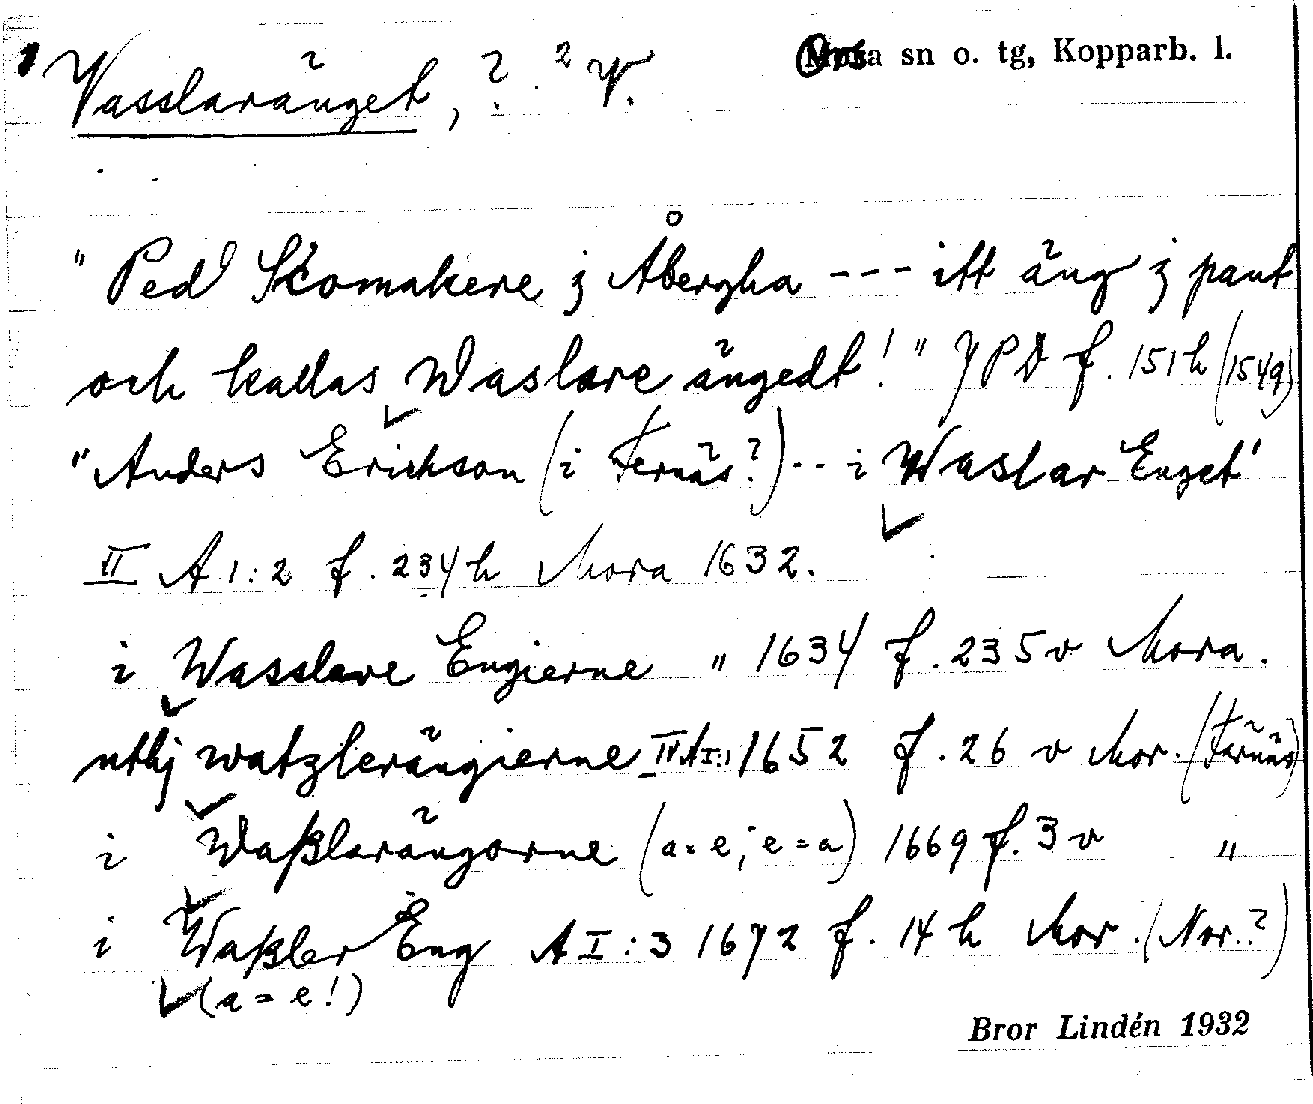 Vasslaränget, ? ? V. Mora sn o. tg, Kopparb. l.
" Ped Skomakere j Åbergha --- itt äng j pant
och kallas Waslare ängedt! " JPD f. 151 h (1549)
" Anders Erickson (i Fernäs?) -- i Waslar Enget"
II A 1:2 f. 234 h Mora 1632.
i Wasslare Engierne " 1634 f. 235 v Mora.
uthj watzlerängierne II A I:1 1652 f. 26 v Mor. (Färnäs)
i Waßlarängorne (a = e; e = a) 1669 f. 3 v "
i Waßler Eng A I:3 1672 f. 14 h Mor. (Nor.?)
(a = e!)
Bror Lindén 1932